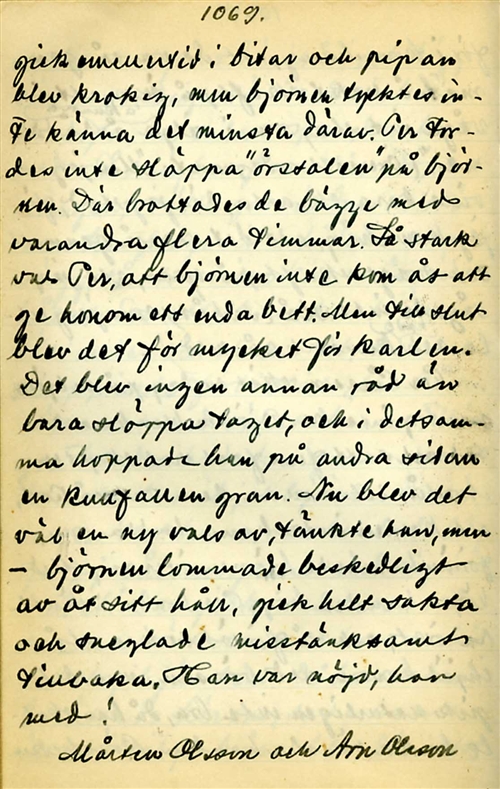 1069.
gick emellertid i bitar och pipan
blev krokig, men björnen tycktes in-
te känna det minsta därav. Per tor-
des inte släppa "örstalen" på björ-
nen. Där brottades de bägge med
varandra flera timmar. Så stark
var Per, att björnen inte kom åt att
ge honom ett enda bett. Men till slut
blev det för mycket för karlen.
Det blev ingen annan råd än
bara släppa taget, och i detsam-
ma hoppade han på andra sidan
en kullfallen gran. Nu blev det
väl en ny vals av, tänkte han, men
– björnen lommade beskedligt
av åt sitt håll, gick helt sakta
och sneglade misstänksamt
tillbaka. Han var nöjd, han
med!
Mårten Olsson och Arn Olsson